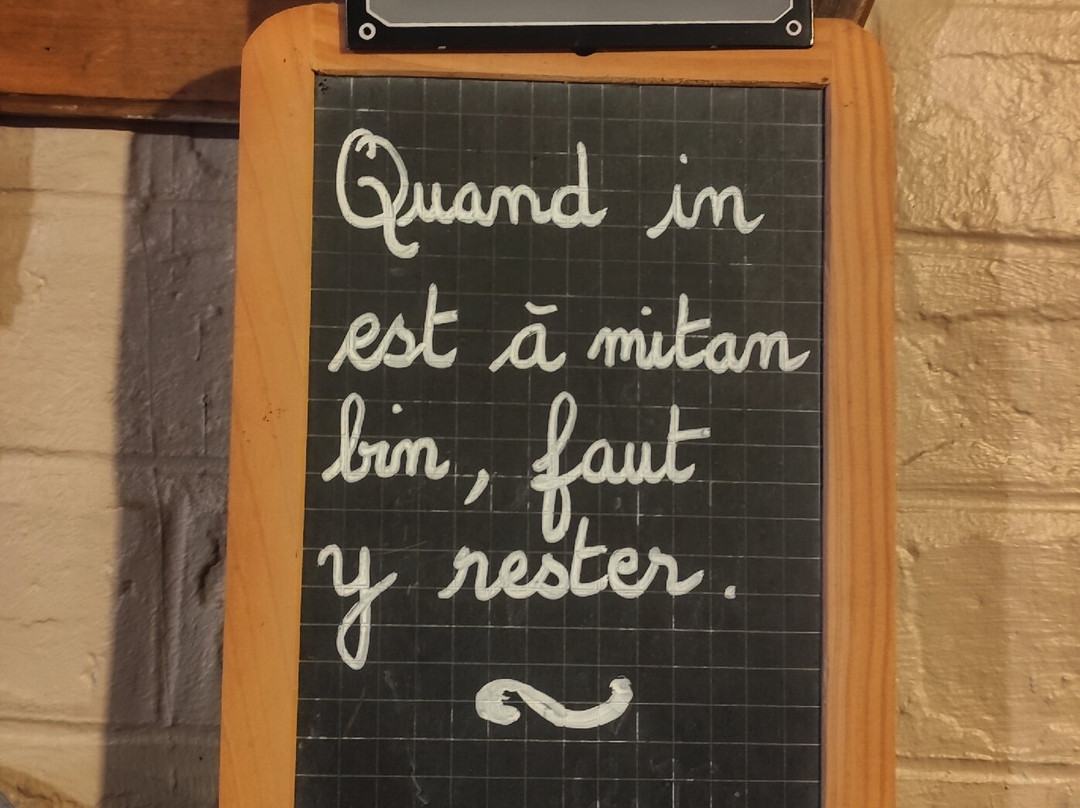 Quand in
est ā mitan
bin, faut
y rester.